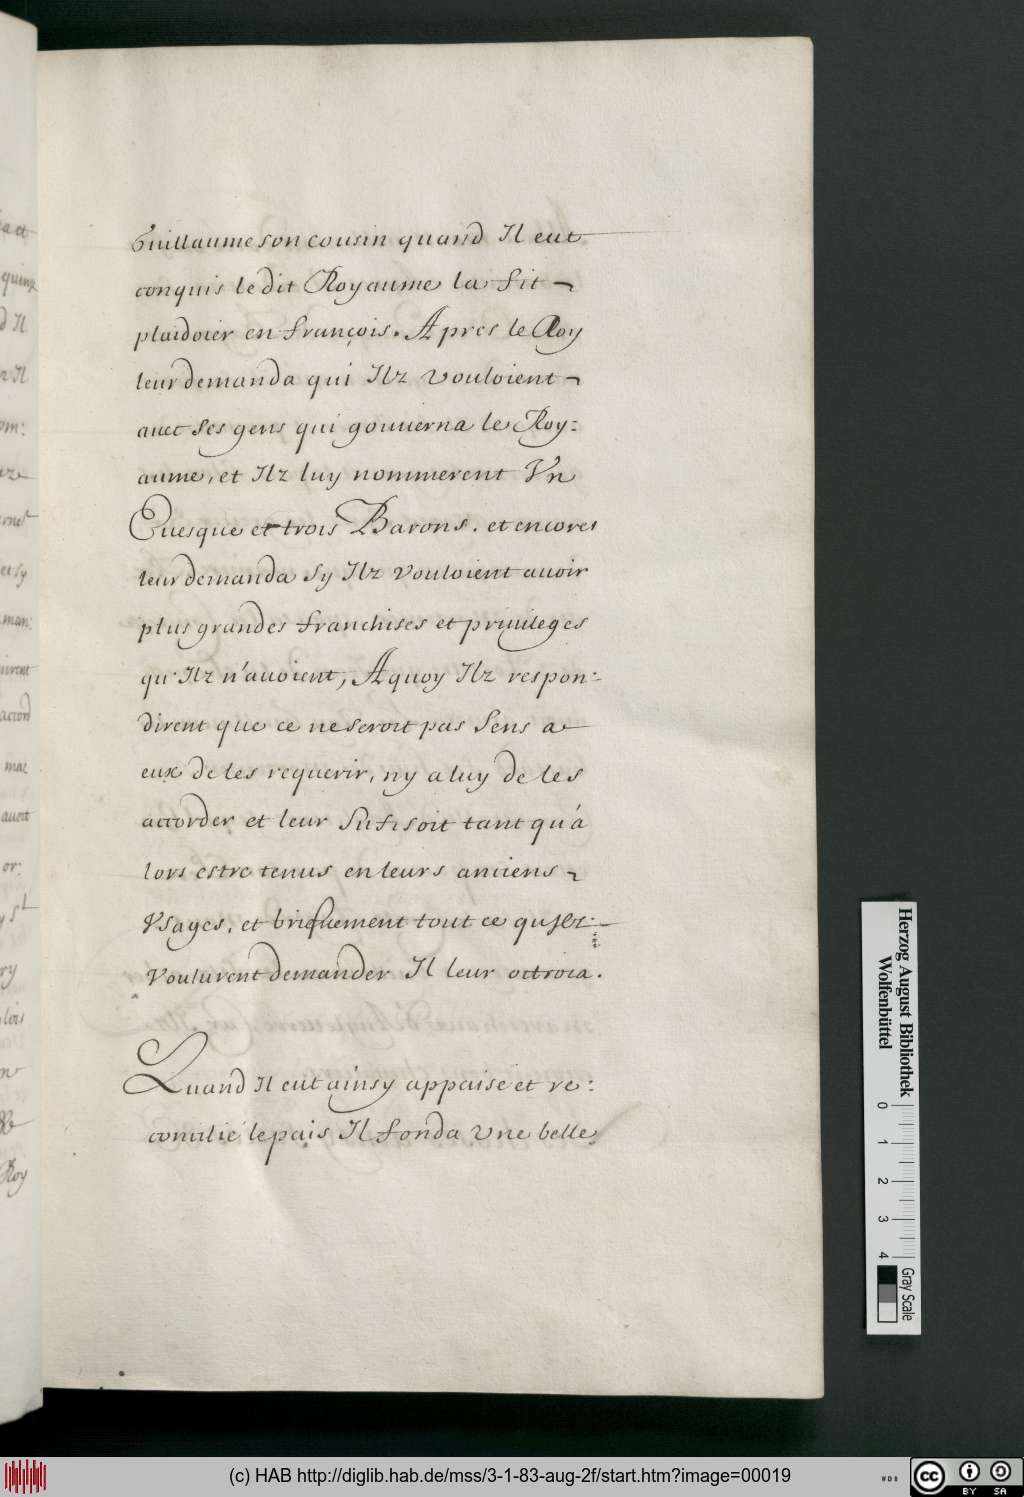 Guillaume son cousin quand Il eut
conquis le dit Royaume la fit ¬
plaidoier en françois. Apres le Roy
leur demanda qui Ilz vouloient ¬
auec ses gens qui gouuerna le Roy:
aume, et Ilz luy nommerent Vn
Euesque et trois Barons. et encores
leur demanda sy Ilz vouloient auoir
plus grandes franchises et priuileges
qu'Ilz n'auoient, A quoy Ilz respon:
dirent que ce ne seroit pas sens a
eux de les requerir, ny a luy de les
accorder et leur sufisoit tant qu'a
lors estre tenus en leurs anciens ¬
Vsages, et briefuement tout ce qu'Ilz
voulurent demander Il leur octroia.
Quand Il eut ainsy appaisé et re:
concilié le païs Il fonda Vne belle
quinze
d Il
n Il
om:
man:
accord
auoit
or:
ry
Roy
Herzog August Bibliothek
Wolfenbüttel
0 1 2 3 4
Gray Scale
(c) HAB http://diglib.hab.de/mss/3-1-83-aug-2f/start.htm?image=00019
cc BY SA